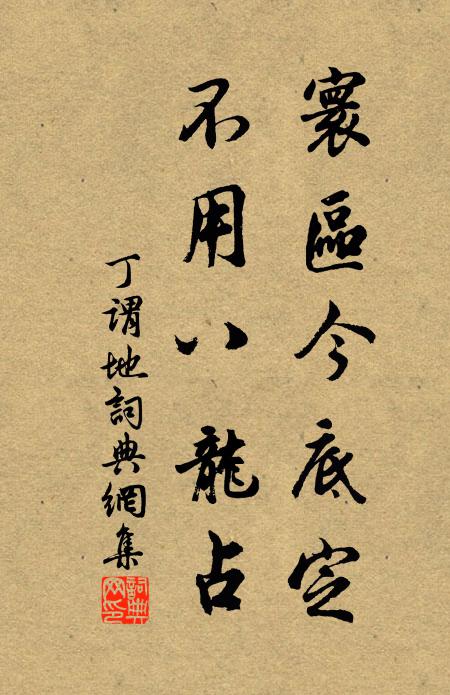 寰區今底定
不用八龍占
丁謂地詞典網集
詞典網印